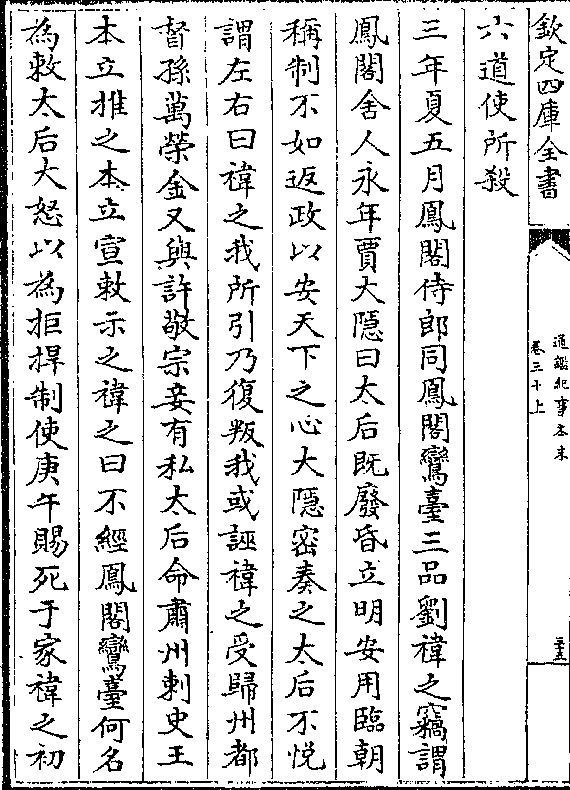 欽定四庫全書
通鑑紀事本末
卷三十上
三十五
六道使所殺
三年夏五月鳳閣侍郎同鳳閣鸞臺三品劉禕之竊謂
鳳閣舍人永年賈大隱曰太后既廢昏立明安用臨朝
稱制不如返政以安天下之心大隱密奏之太后不悦
謂左右曰禕之我所引乃復叛我或誣禕之受歸州都
督孫萬榮金又與許敬宗妾有私太后命肅州刺史王
本立推之本立宣敕示之禕之曰不經鳳閣鸞臺何名
為敕太后大怒以為拒捍制使庚午賜死于家禕之初